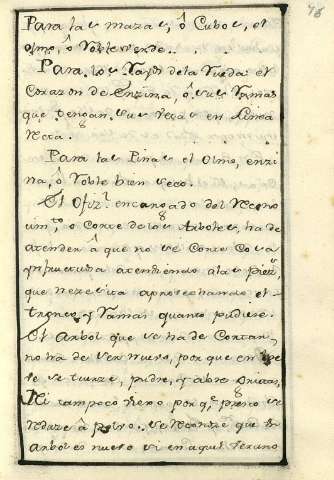 Para las mazas, ô Cubos, el
olmo, ô Roble verde..
Para los Rayos de la Rueda el
Corazon de Enzina, ô sus Ramas
que tengan sus vetas en Linea
Recta.
Para las Pinas el olmo, enzi
na, ô Roble bien seco.
El Ofiz.l encargado del Recono
zim.to ô Corte de los Arboles, ha de
atender â que no se Corte Cosa
ynfructuosa atendiendo a las piezas,
que nezesita aprovechando el
tronco, y Ramas quanto pudiese.
El Arbol que se ha de Cortar,
no ha de ser nuevo, por que en
se tuerze, pudre, y abre Grietas,
Ni tampoco viejo porq.e presto se
Reduze â polvo. se Reconoze que el
Arbol es nuevo si en aquel verano